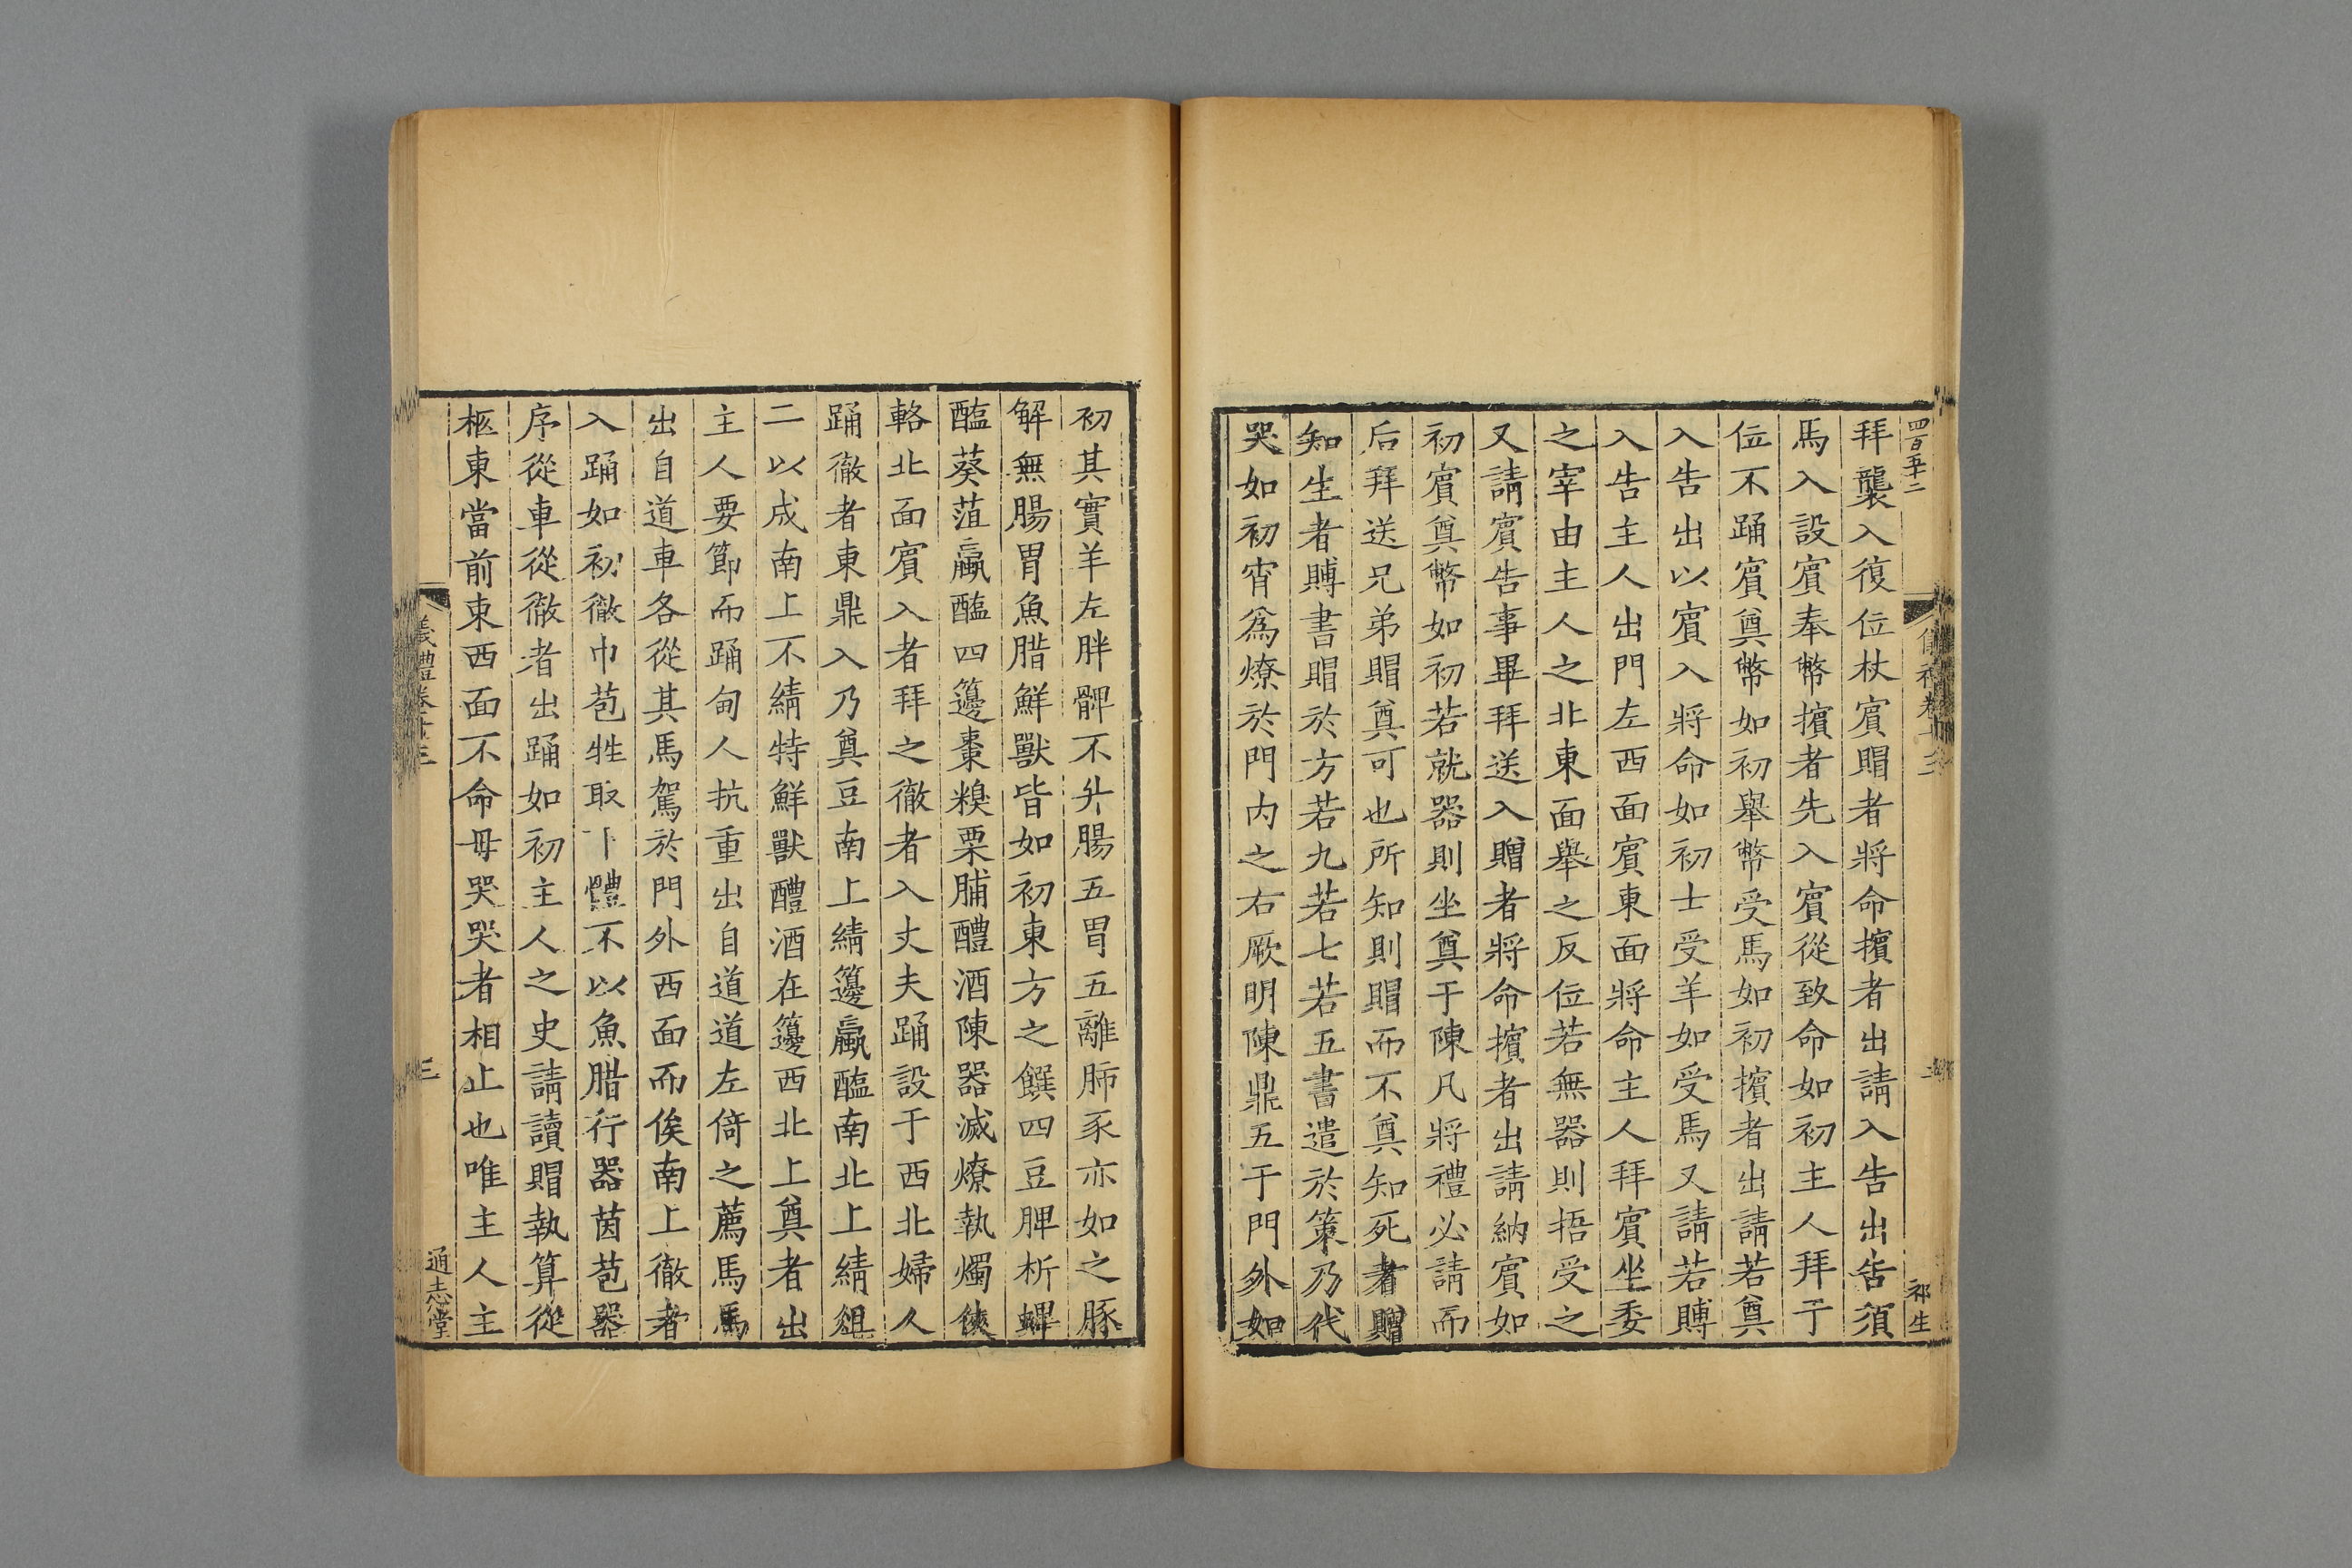 四百五十二
拜襲入復位杖賔賵者將命擯者出請入告出告須
馬入設賔奉幣擯者先入賔從致命如初主人拜于
位不踊賔奠幣如初舉幣受馬如初擯者出請若奠
入告出以賔入將命如初士受羊如受馬又請若賻
入告主人出門左西面賔東面將命主人拜賔坐委
之宰由主人之北東面舉之反位若無器則捂受之
又請賔告事畢拜送入贈者將命擯者出請納賔如
初賔奠幣如初若就器則坐奠于陳凡將禮必請而
后拜送兄弟賵奠可也所知則賵而不奠知死者贈
知生者賻書賵於方若九若七若五書遣於策乃代
哭如初宵爲燎於門内之右厥明陳鼎五于門外如
祁生
初其實羊左胖髀不升腸五胃五離肺豕亦如之豚
解無腸胃魚腊鮮獸皆如初東方之饌四豆脾析蜱
醢葵菹蠃醢四籩棗糗栗脯醴酒陳器滅燎執燭俠
輅北面賔入者拜之徹者入丈夫踊設于西北婦人
踊徹者東鼎入乃奠豆南上綪籩蠃醢南北上綪俎
二以成南上不綪特鮮獸醴酒在籩西北上奠者出
主人要節而踊甸人抗重出自道道左倚之薦馬馬
出自道車各從其馬駕於門外西面而俟南上徹者
入踊如初徹巾苞牲取下體不以魚腊行器茵苞器
序從車從徹者出踊如初主人之史請讀賵執算從
柩東當前束西面不命毋哭哭者相止也唯主人主
儀禮卷十三
三
通志堂